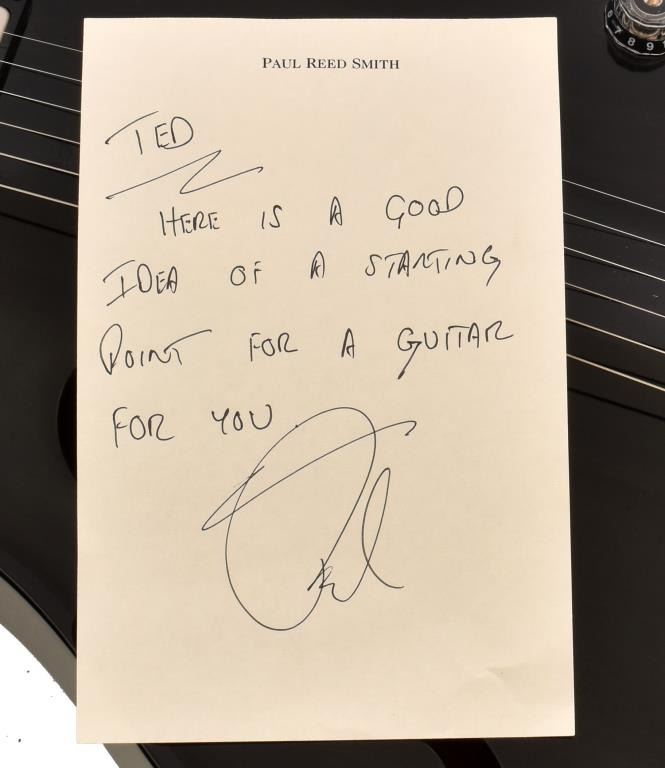 PAUL REED SMITH
TED
HERE IS A GOOD
IDEA OF A STARTING
POINT FOR A GUITAR
FOR YOU
Paul
6 7 8 9